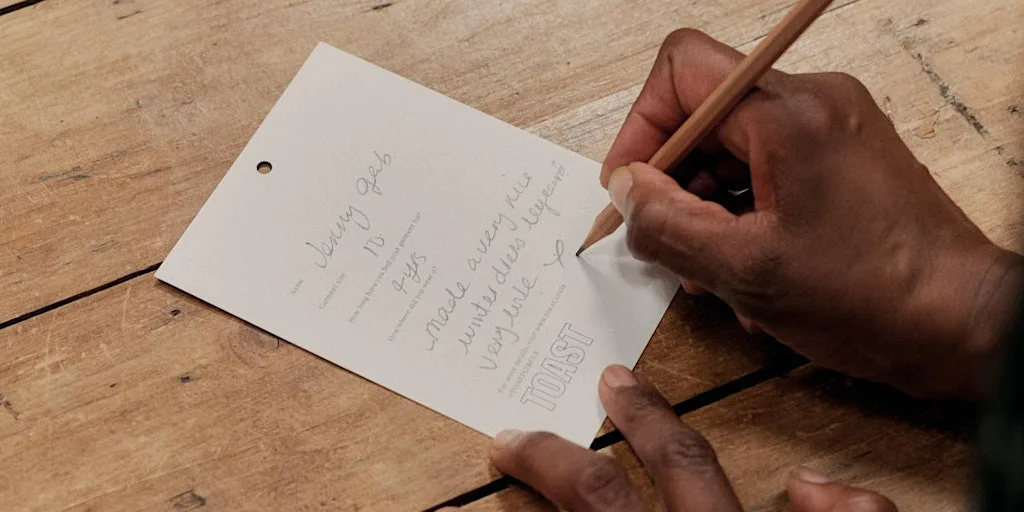 Name Jenny geb
Garment size 10
How long have you had your garment for?
4 yrs
How/where did you wear it?
made a very nice
winter dress layered
very
For more details visit www.toast.com
TOAST